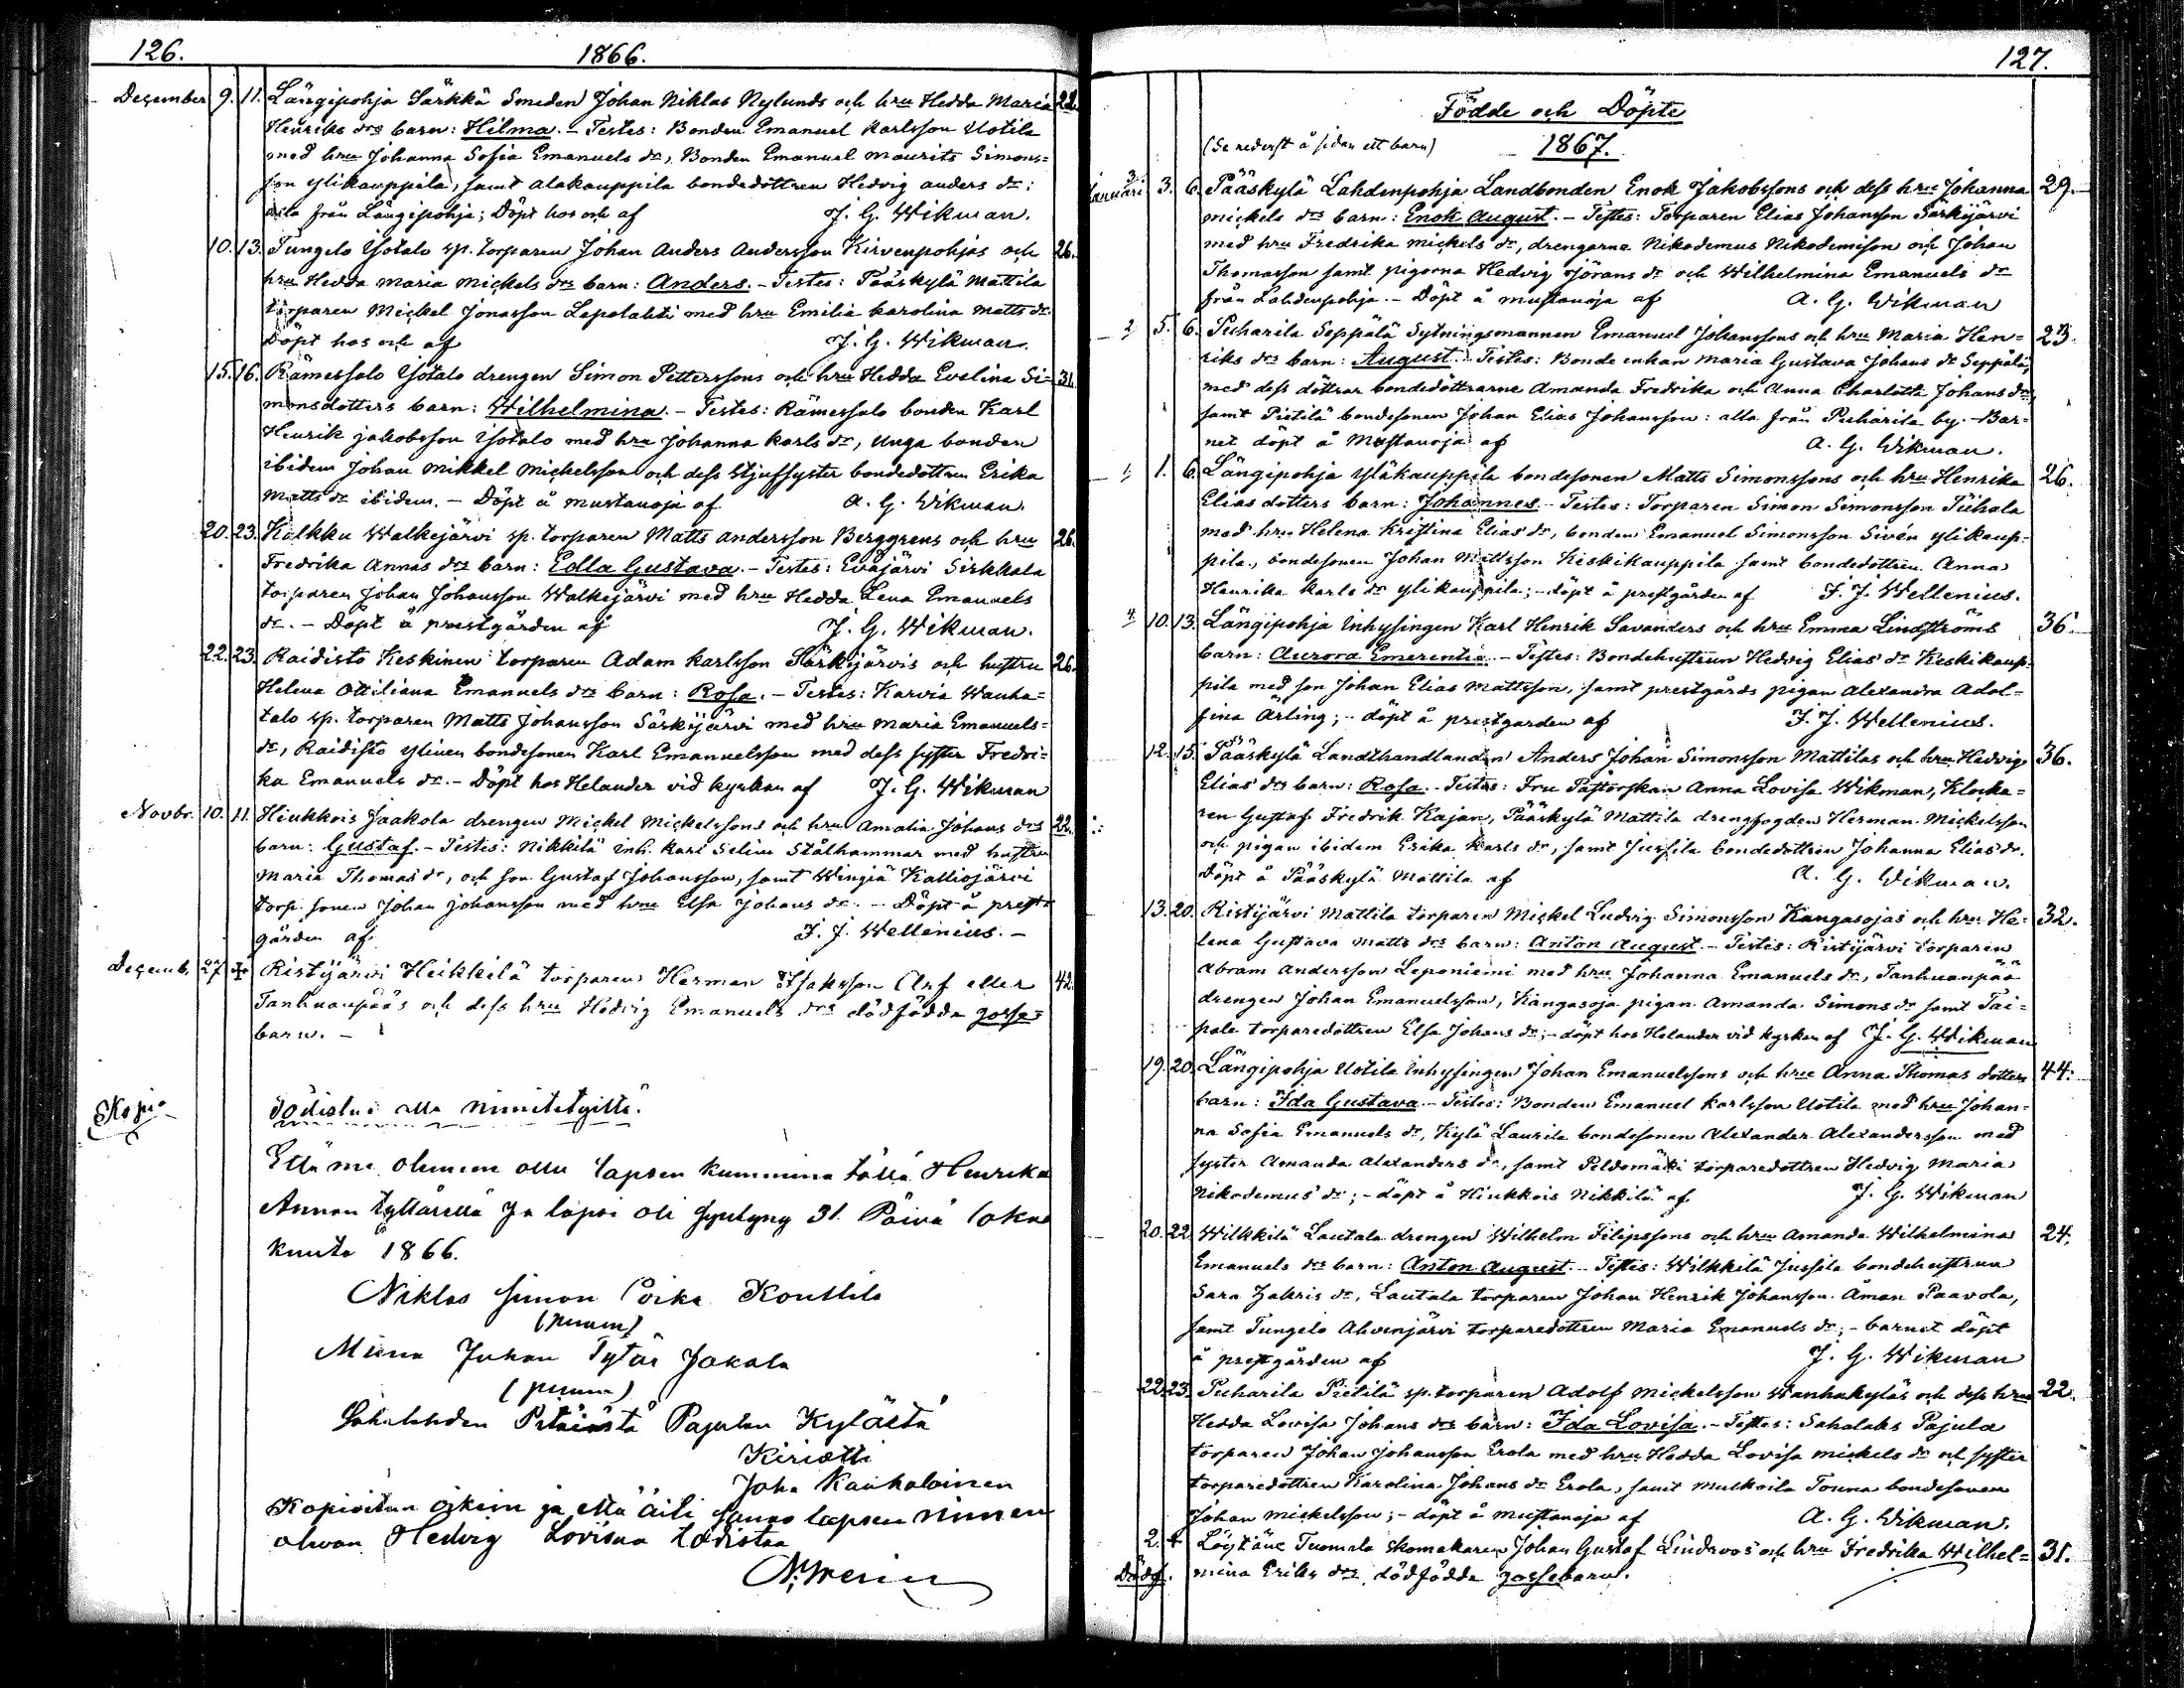 126.
1866.
December 9. 11. Längipohja Särkkä Smeden Johan Niklas Nylunds och hru Hedda Maria 22.
Henriks drs barn: Hilma. - Testes: Bonden Emanuel Karlsson Uotila
med hru Johanna Sofia Emanuels dr, Bonden Emanuel Maurits Simons=
son Ylikauppila, samt Alakauppila bondedottren Hedvig Anders dr;
alla från Längipohja; Döpt hos och af J. G. Wikman.
10. 13. Tungelo Isotalo sp. torparen Johan Anders Andersson Kirvenpohjas och 26.
hru Hedda Maria Mickels drs barn: Anders. - Testes: Pääskylä Mattila
torparen Mickel Jonasson Lepolahti med hru Emilia Karolina Matts dr.
Döpt hos och af J. G. Wikman.
15. 16. Rämessalo Isotalo drengen Simon Petterssons och hru Hedda Evelina Si= 31.
monsdotters barn: Wilhelmina. - Testes: Rämessalo bonden Karl
Henrik Jakobsson Isotalo med hru Johanna Karls dr, unga bonden
ibidem Johan Mikkel Michelsson och dess styfsyster bondedottren Erika
Matts dr ibidem. - Döpt å Mustanoja af A. G. Wikman.
20. 23. Kalkku Walkejärvi sp. torparen Matts Andersson Berggrens och hru 26.
Fredrika Annas drs barn: Edla Gustava. - Testes: Eväjärvi Sirkkala
torparen Johan Johansson Walkejärvi med hru Hedda Lena Emanuels
dr. - Döpt å prestgården af J. G. Wikman.
22. 23. Raidisto Keskinen torparen Adam Karlsson Särkijärvis och hustru 26.
Helena Ottiliana Emanuels drs barn: Rosa. - Testes: Karvia Wanha=
talo sp. torparen Matts Johansson Särkijärvi med hru Maria Emanuels=
dr, Raidisto Ylinen bondesonen Karl Emanuelsson med dess syster Fredri=
ka Emanuels dr. - Döpt hos Helander vid kyrkan af J. G. Wikman
Novbr. 10. 11. Hiukkois Jaakola drengen Mickel Mickelssons och hru Amalia Johans drs 22.
barn: Gustaf. - Testes: Nikkilä inh. Karl Selim Stålhammar med hustru
Maria Thomas dr, och son Gustaf Johansson, samt Wengiä Kalliojärvi
torp. sonen Johan Johansson med hru Elsa Johans dr. - Döpt å prest=
gården af J. J. Wellenius. -
Decemb. 27 + Ristijärvi Heikkilä torparen Herman Isaksson Arf eller 42.
Tanhuanpääs och dess hru Hedvig Emanuels drs dödfödda gosse=
barn. -
Kopia
Todistus alla nimitetyiltä.
Että me olemme ollu lapsen kummina tällä Henrika
Annan tyttärellä ja lapsi oli syntyny 31. Päivä loka
kuuta 1866.
Niklas Simon Poika Konttila
(puum)
Miina Juhan Tytär Jakala
(puum)
Sahalahden Pitäjästä Pajulan Kylästä
Kirjoitti
Joha Kauhalainen
Kopioitun oikein ja että äiti sanoo lapsen nimen
olevan Hedvig Lovisan todistaa
127.
Födde och Döpte
(Se nederst å sidan ett barn) 1867.
Januari 3. 6. Pääskylä Lahdenpohja Landbonden Enok Jakobssons och dess hru Johanna 29.
Mickels drs barn: Enok August. - Testes: Torparen Elias Johansson Särkijärvi
med hru Fredrika Mickels dr, drengarne Nikodemus Nikodemison och Johan
Thomasson samt pigorna Hedvig Jörans dr och Wilhelmina Emanuels dr
från Lahdenpohja. - Döpt å Mustanoja af A. G. Wikman
2 5. 6. Puharila Seppälä Sytningsmannen Emanuel Johanssons och hru Maria Hen= 23.
riks drs barn: August. Testes: Bonde enkan Maria Gustava Johans dr Seppälä,
med dess döttrar bondedöttrarne Amanda Fredrika och Anna Charlotta Johans drs,
samt Pietilä bondesonen Johan Elias Johansson: alla från Puharila by. - Bar=
net döpt å Mustanoja af A. G. Wikman.
1 1. 6. Längipohja Yläkauppila bondesonen Matts Simonssons och hru Henrika 26.
Elias dotters barn: Johannes. - Testes: Torparen Simon Simonsson Tiihala
med hru Helena Kristina Elias dr, bonden Emanuel Simonsson Sivén Ylikaup=
pila, bondesonen Johan Mattsson Keskikauppila samt bondedottren Anna
Henrika Karls dr Ylikauppila; - döpt å prestgården af J. J. Wellenius.
4 10. 13. Längipohja Inhysingen Karl Henrik Savanders och hru Emma Lindströms 36.
barn: Aurora Emerentia. - Testes: Bondehustrun Hedvig Elias dr Keskikaup=
pila med son Johan Elias Mattsson, samt prestgårds pigan Alexandra Adol=
fina Ärling; - döpt å prestgården af J. J. Wellenius.
12. 15. Pääskylä Landthandlanden Anders Johan Simonsson Mattilas och hru Hedvig 36.
Elias drs barn: Rosa. - Testes: Fru Pastorskan Anna Lovisa Wikman, Klocka=
ren Gustaf Fredrik Kajan, Pääskylä Mattila drengfogden Herman Mickelsson
och pigan ibidem Erika Karls dr, samt Jussila bondedottren Johanna Elias dr.
Döpt å Pääskylä Mattila af A. G. Wikman.
13. 20. Ristijärvi Mattila torparen Mickel Ludvig Simonsson Kangasojas och hru He= 32.
lena Gustava Matts drs barn: Anton August. - Testes: Ristijärvi torparen
Abram Andersson Leponiemi med hru Johanna Emanuels dr, Tanhuanpää
drengen Johan Emanuelsson, Kangasoja pigan Amanda Simons dr samt Tai=
pale torparedottren Elsa Johans dr; - döpt hos Helander vid kyrkan af J. G. Wikman
19. 20. Längipohja Uotila Inhysingen Johan Emanuelssons och hru Anna Thomas dotters 44.
barn: Ida Gustava. - Testes: Bonden Emanuel Karlsson Uotila med hru Johan=
na Sofia Emanuels dr, Kylä Laurila bondesonen Alexander Alexandersson med
syster Amanda Alexanders dr, samt Peldomäki torparedottren Hedvig Maria
Nikodemus dr; - döpt å Hiukkois Nikkilä af J. G. Wikman
20. 22 Wilkkilä Lautala drengen Wilhelm Filipssons och hru Amanda Wilhelmina 24.
Emanuels drs barn: Anton August. - Testes: Wilkkilä Jussila bondehustrun
Sara Zakris dr, Lautala torparen Johan Henrik Johansson Åman Paavola,
samt Tungelo Ahvenjärvi torparedottren Maria Emanuels dr; - barnet döpt
å prestgården af J. G. Wikman
22. 23. Puharila Pietilä sp. torparen Adolf Mickelsson Wanhakyläs och dess hru 22.
Hedda Lovisa Johans drs barn: Ida Lovisa. - Testes: Sahalaks Pajula
torparen Johan Johansson Erola med hru Hedda Lovisa Mickels dr och syster
torparedottren Karolina Johans dr Erola, samt Muskoila Touna bondesonen
Johan Mickelsson; - döpt å Mustanoja af A. G. Wikman.
2. + Löytäne Tuomala skomakaren Johan Gustaf Lindroos och hru Fredrika Wilhel= 31.
Dödf. mina Eriks drs dödfödda gossebarn.